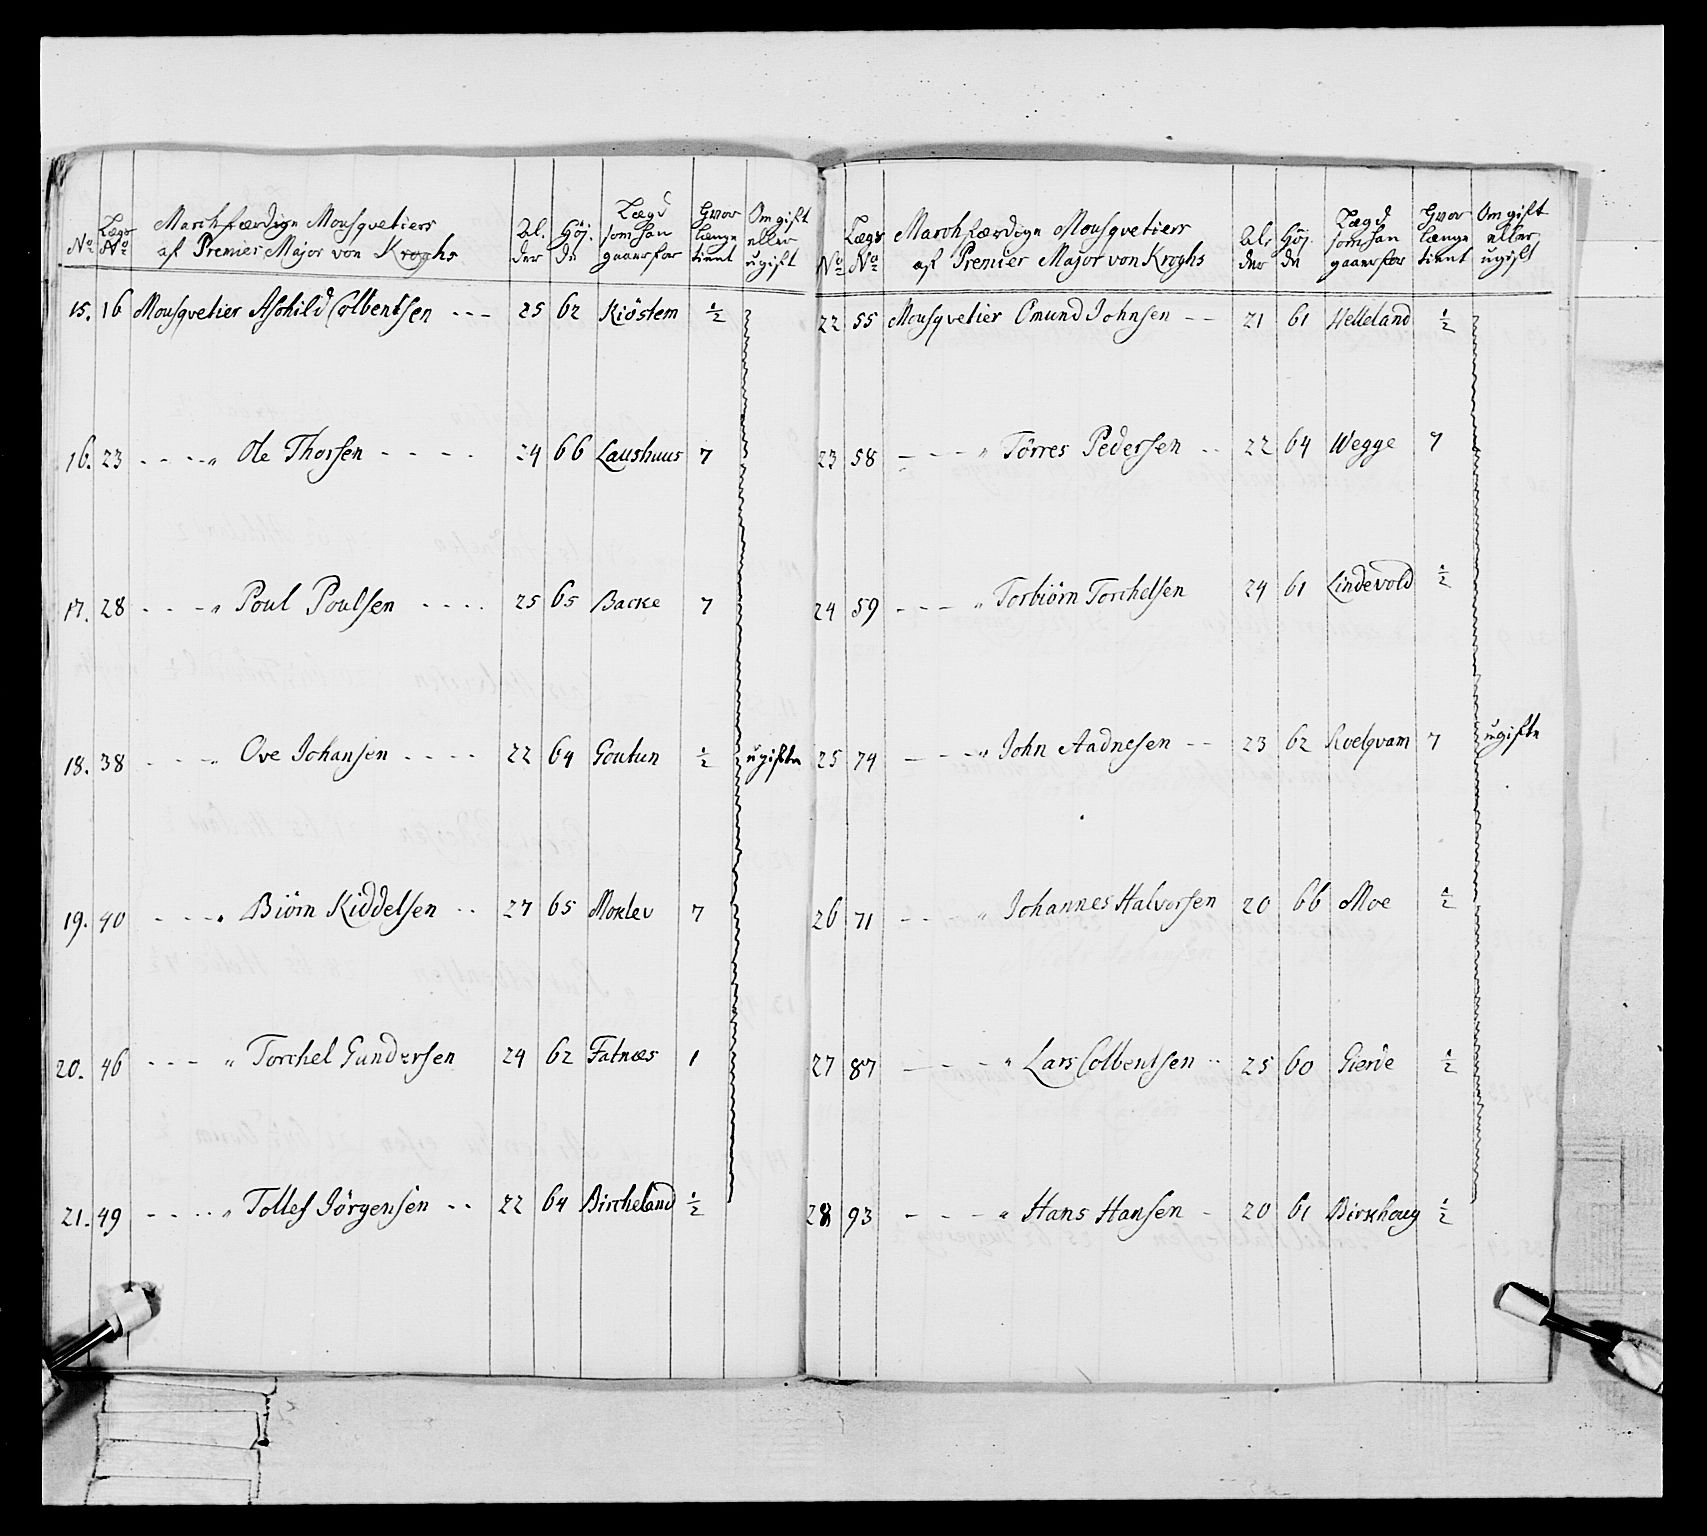 No Lægs No Marchfærdige Mousqvetiers af Premier Major von Kroghs Al. der Høj. de Lægd som han gaaer for Hvor længe tient Om gift eller ugift
15. 16 Mousqvetier Aschild Colbentsen - - - 25 62 Kiöstem ½
16. 23 - - - - „ Ole Thorsen - - - - 24 66 Laushuus 7
17. 28 - - - - „ Poul Poulsen - - - - 25 65 Backe 7
18. 38 - - - - „ Ove Johansen - - - - 22 64 Goutun ½ ugifte
19. 40 - - - - „ Biörn Kiddelsen - - 27 65 Moklev 7
20. 46 - - - „ Torchel Gundersen 24 62 Fatnæs 1
21. 49 - - - - „ Tollef Jörgensen - - 22 64 Bircheland ½
No Lægs No Marchfærdige Mousqvetiers af Premier Major von Kroghs Al. der Høj. de Lægd som han gaaer for Hvor længe tient Om gift eller ugift
22 55 Mousqvetier Omund Johnsen - - 21 61 Helleland ½
23 58 - - - - „ Törres Pedersen - - 22 64 Wegge 7
24 59 - - - - „ Torbiörn Torchelsen 24 61 Lindevold ½
25 74 - - - „ John Aadnesen - - 23 62 Roelqvam 7 ugifte
26 71 - - - „ Johannes Halvorsen 20 66 Moe ½
27 87 - - - „ Lars Colbentsen - - 25 60 Gierie ½
28 93 - - - - „ Hans Hansen - 20 61 Birkhoug ½